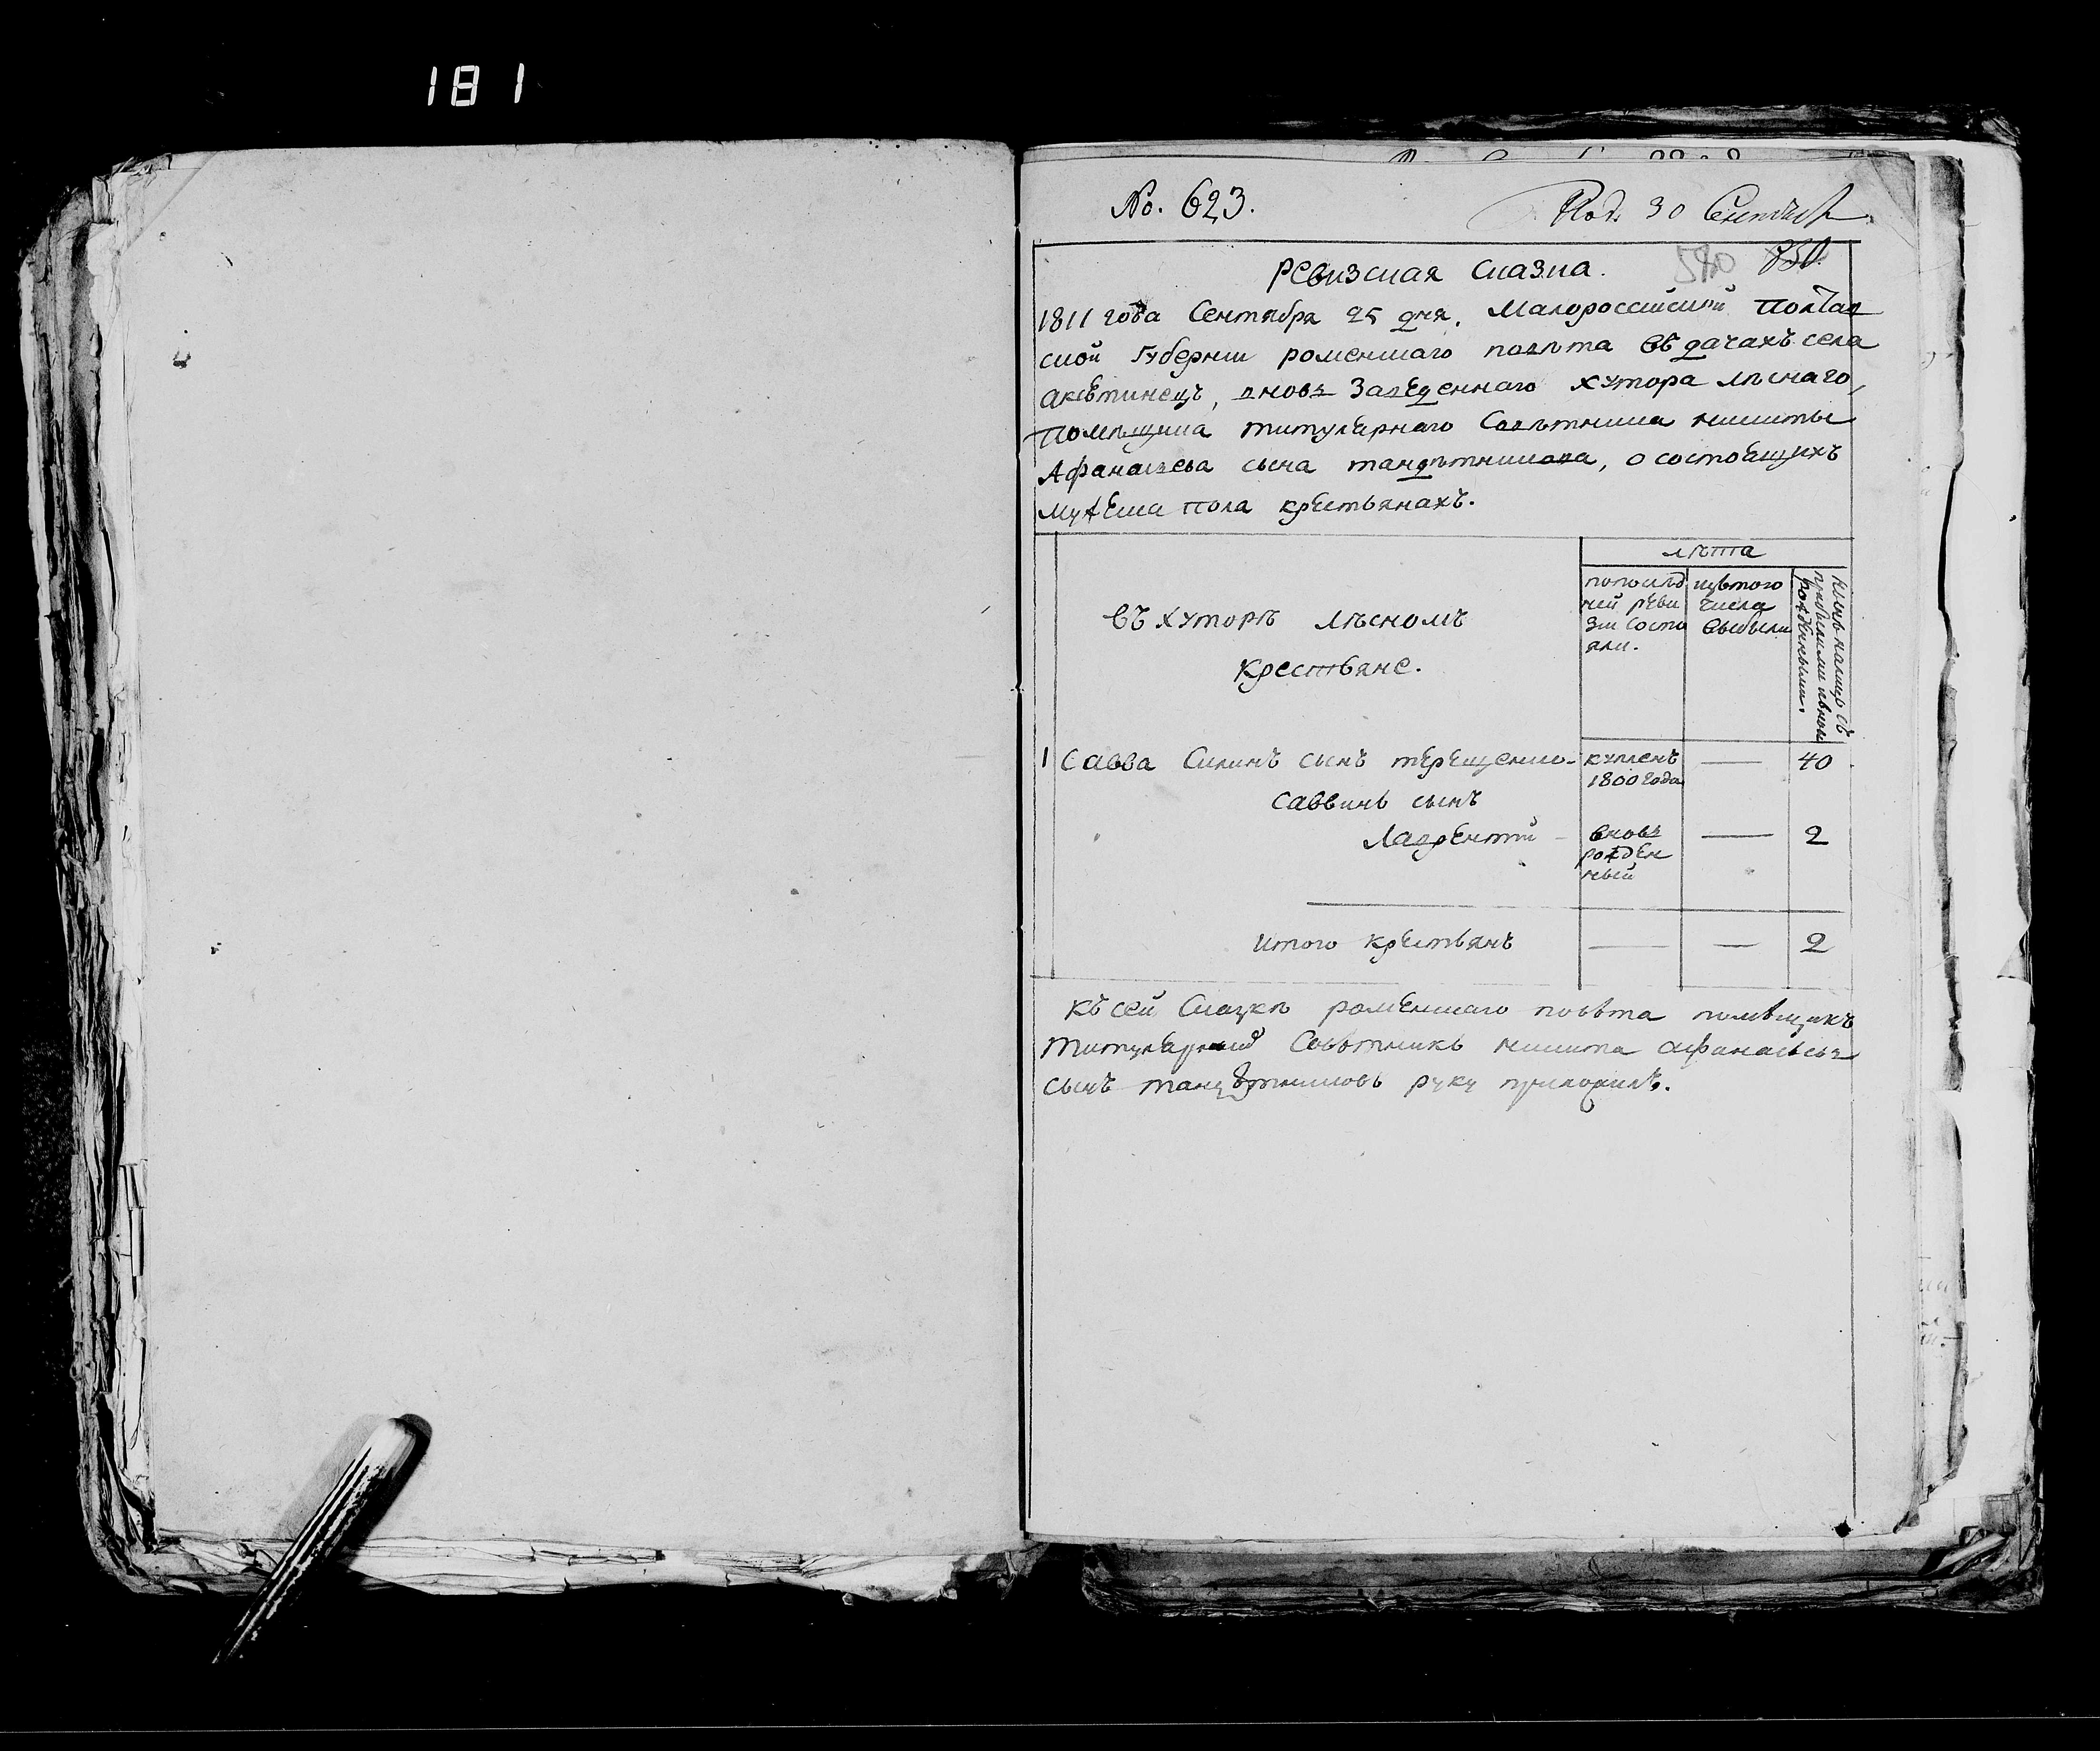 181
No. 623.
Под. 30 Сентября
850.
580
Ревизская сказка.
1811 года Сентября 25 дня. Малороссийской Полтав
ской губернии роменскаго повѣта въ дачахъ села
аксютинецъ, вновь Заведеннаго хутора лѣснаго,
Помѣщика титулярнаго Совѣтника никиты
Афанасьева сына тандѣтникова, о состоящихъ
мужеска пола крестьянахъ.
лѣта
въ хуторѣ лѣсномъ
крестьяне.
попослѣд
ней реви
зіи состо
яли.
изътого
числа
выбыли
нынѣ налицо съ
прибылими ивновь
рожденными.
1 Савва Силинъ сынъ терещенко - купленъ 1800 года — 40
Саввинъ сынъ
Лаврентій - вновь рожден ный — 2
итого крестьянъ — — 2
къ сей Сказкѣ роменскаго повѣта помѣщикъ
титулярный Совѣтникъ никита афанасьевъ
сынъ тандѣтниковъ руку приложилъ.